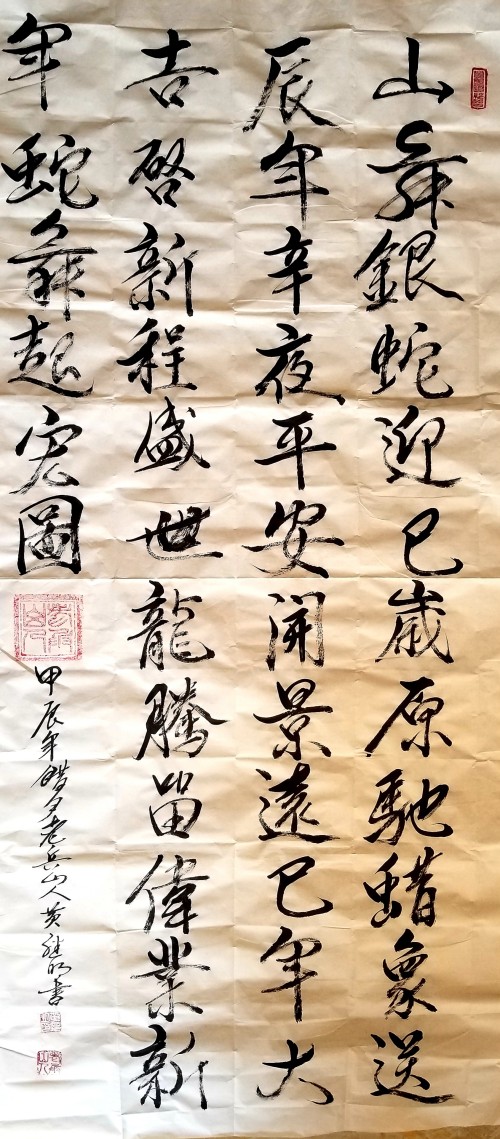 山舞銀蛇迎巳歲原馳蜡象送
辰年辛夜平安開景遠巳年大
吉啓新程盛世龍騰留偉業新
年蛇舞起宏圖
甲辰年腊夕老兵山人黄書